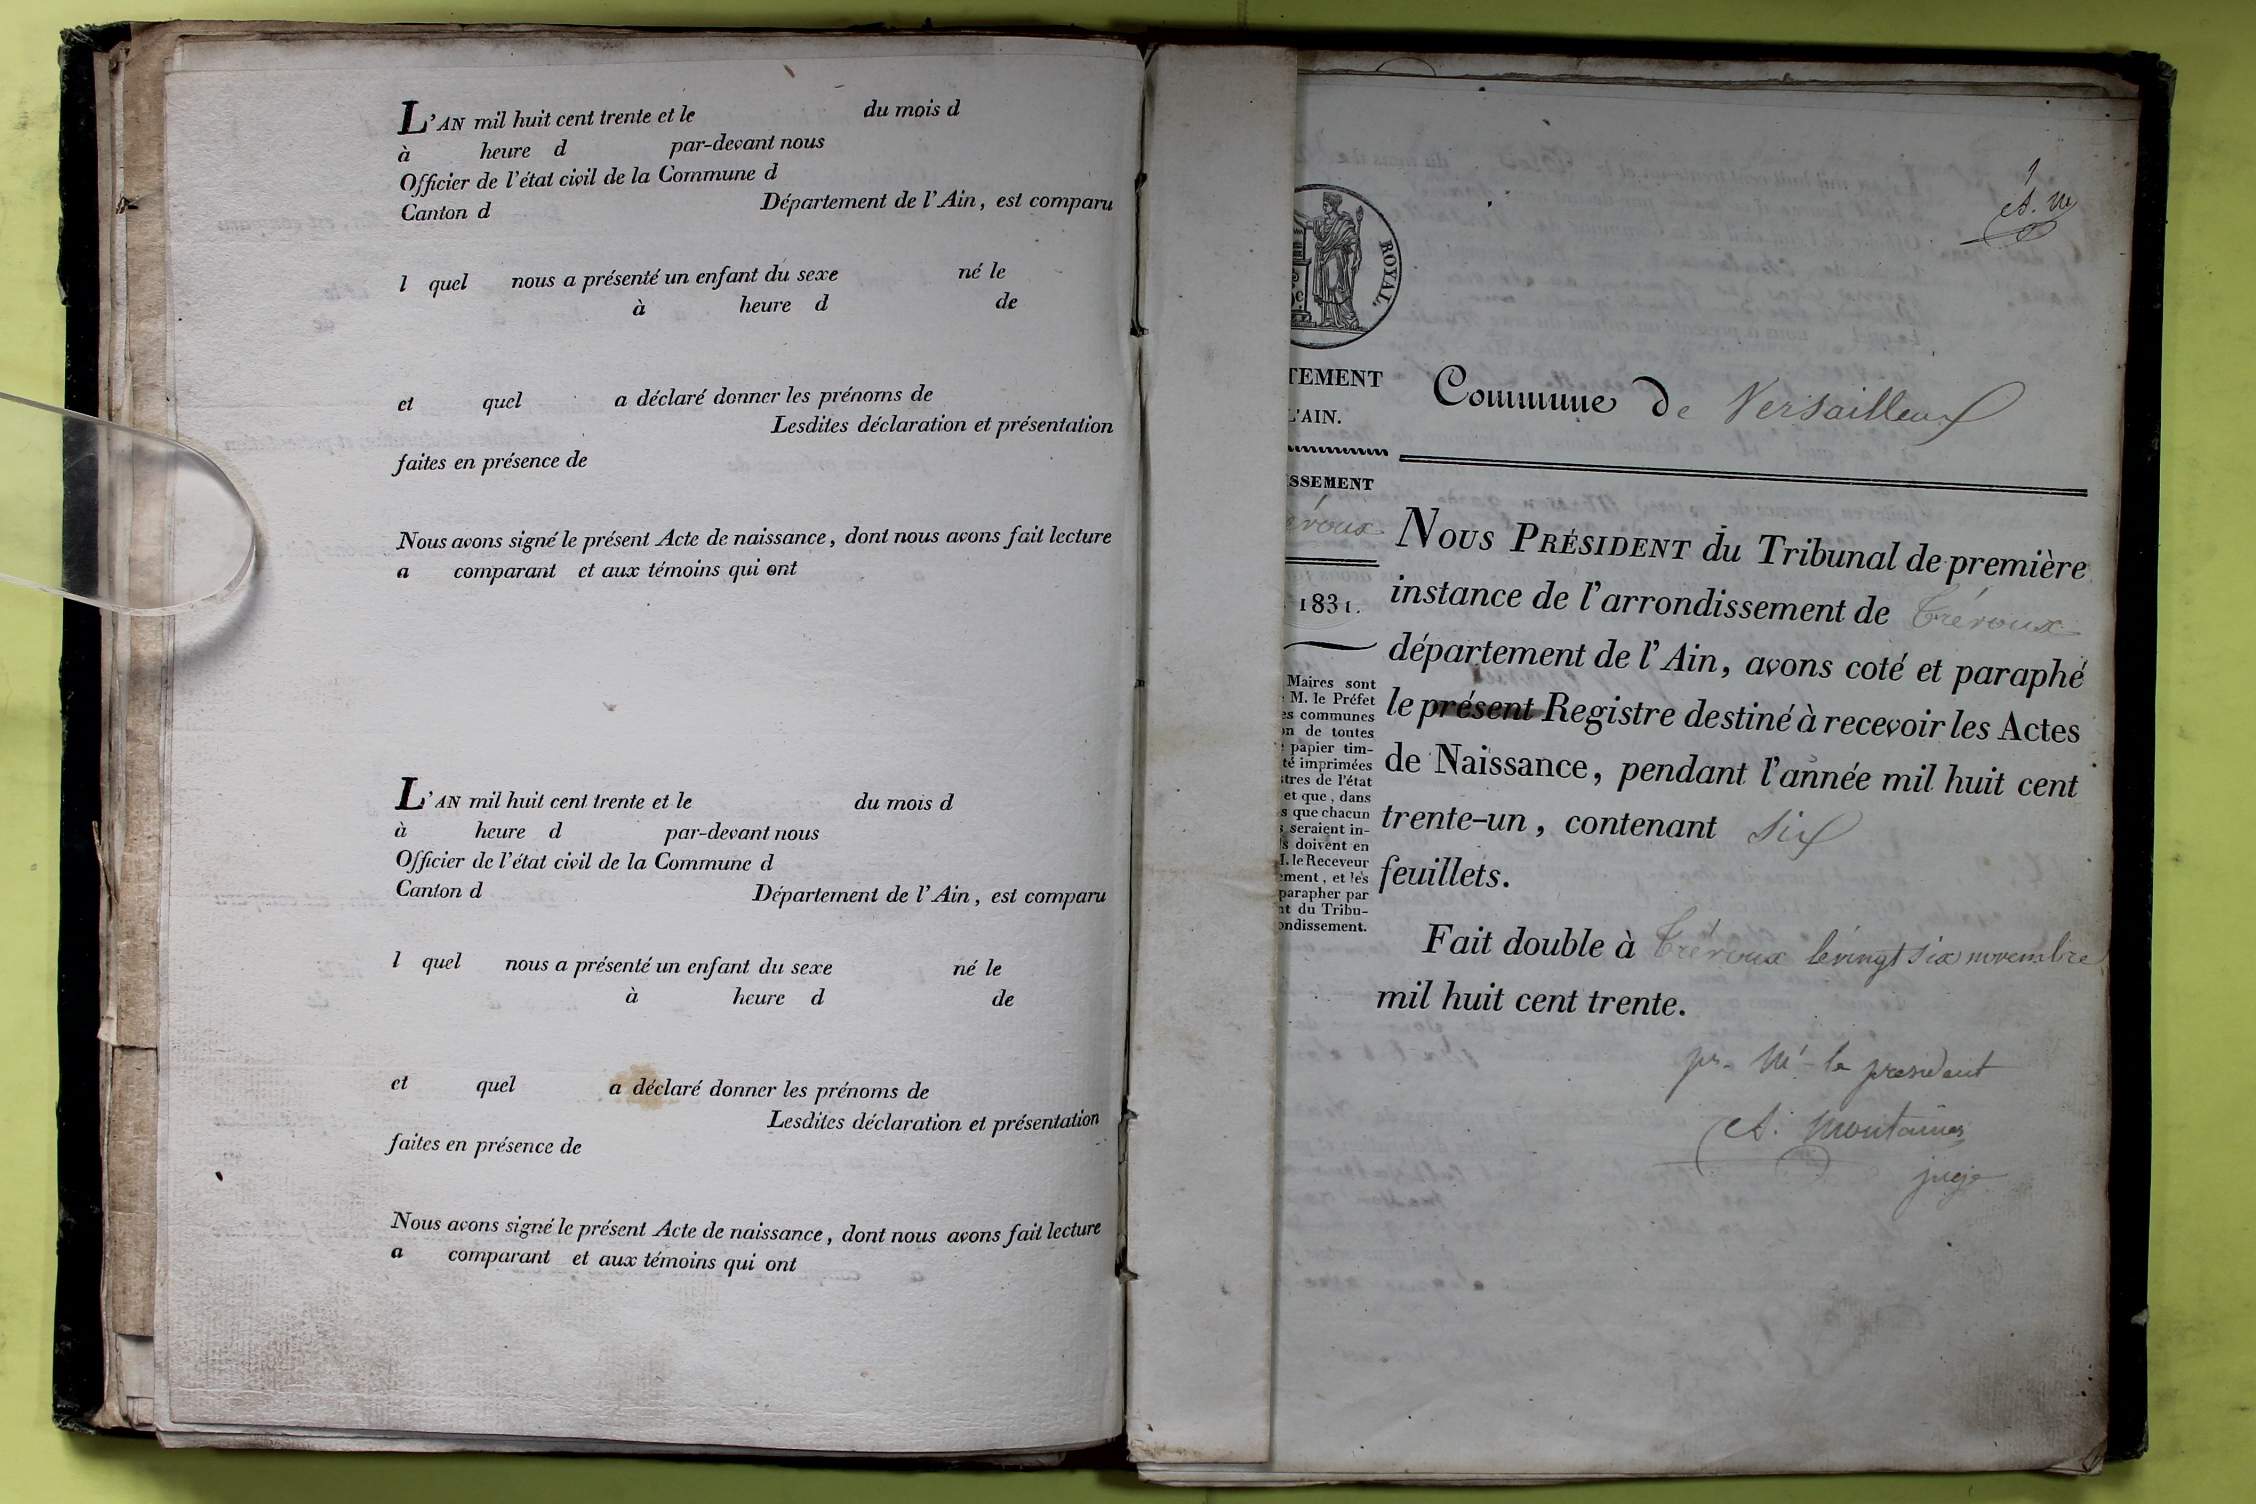 L'AN mil huit cent trente et le du mois d
à heure d par-devant nous
Officier de l'état civil de la Commune d
Canton d Département de l'Ain, est comparu
l quel nous a présenté un enfant du sexe né le
à heure d de
et quel a déclaré donner les prénoms de
Lesdites déclaration et présentation
faites en présence de
Nous avons signé le présent Acte de naissance, dont nous avons fait lecture
a comparant et aux témoins qui ont
L'AN mil huit cent trente et le du mois d
à heure d par-devant nous
Officier de l'état civil de la Commune d
Canton d Département de l'Ain, est comparu
l quel nous a présenté un enfant du sexe né le
à heure d de
et quel a déclaré donner les prénoms de
Lesdites déclaration et présentation
faites en présence de
Nous avons signé le présent Acte de naissance, dont nous avons fait lecture
a comparant et aux témoins qui ont
1
A. M
ROYAL.
TEMENT
L'AIN.
SSEMENT
évoux
1831.
Maires sont
M. le Préfet
es communes
on de toutes
papier tim-
té imprimées
tres de l'état
et que, dans
s que chacun
seraient in-
s doivent en
I. le Receveur
ement, et les
parapher par
nt du Tribu-
ondissement.
Commune de Versailleux
NOUS PRÉSIDENT du Tribunal de première
instance de l'arrondissement de Trévoux
département de l'Ain, avons coté et paraphé
le présent Registre destiné à recevoir les Actes
de Naissance, pendant l'année mil huit cent
trente-un, contenant six
feuillets.
Fait double à Trévoux le vingt six novembre
mil huit cent trente.
pr. Mr le president
A. Montaines
juge